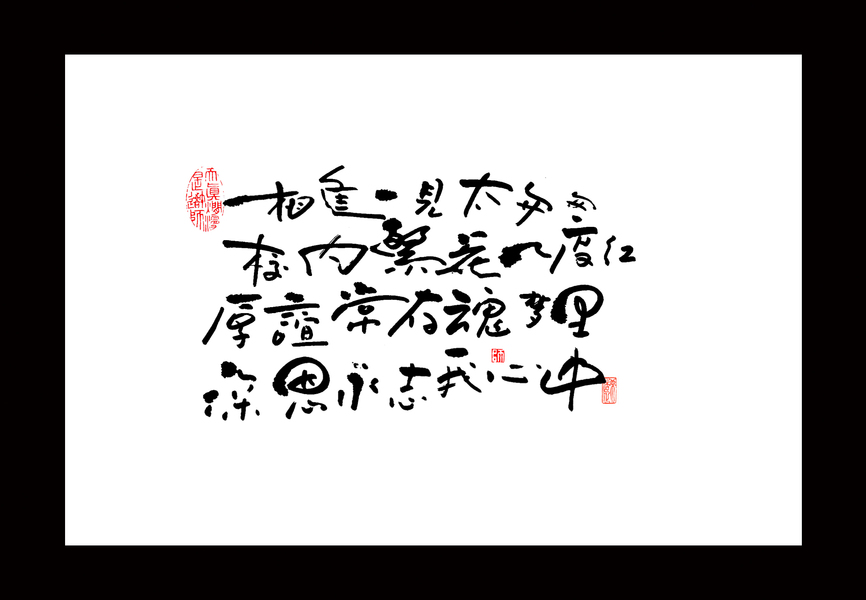 相逢一見太匆匆
校内繁花几度红
厚誼常存魂梦里
深恩永志我心中